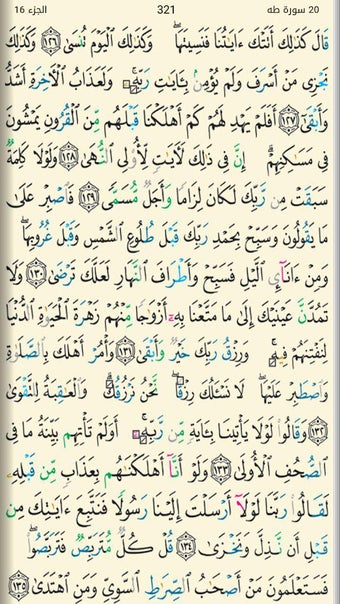 20 سورة طه 321 الجزء 16
قَالَ كَذَٰلِكَ أَتَتْكَ ءَايَٰتُنَا فَنَسِيتَهَا ۖ وَكَذَٰلِكَ ٱلْيَوْمَ تُنسَىٰ ١٢٦ وَكَذَٰلِكَ
نَجْزِى مَنْ أَسْرَفَ وَلَمْ يُؤْمِنۢ بِـَٔايَٰتِ رَبِّهِۦ ۚ وَلَعَذَابُ ٱلْءَاخِرَةِ أَشَدُّ
وَأَبْقَىٰٓ ١٢٧ أَفَلَمْ يَهْدِ لَهُمْ كَمْ أَهْلَكْنَا قَبْلَهُم مِّنَ ٱلْقُرُونِ يَمْشُونَ
فِى مَسَٰكِنِهِمْ ۗ إِنَّ فِى ذَٰلِكَ لَءَايَٰتٍ لِّأُو۟لِى ٱلنُّهَىٰ ١٢٨ وَلَوْلَا كَلِمَةٌ
سَبَقَتْ مِن رَّبِّكَ لَكَانَ لِزَامًا وَأَجَلٌ مُّسَمًّى ١٢٩ فَٱصْبِرْ عَلَىٰ
مَا يَقُولُونَ وَسَبِّحْ بِحَمْدِ رَبِّكَ قَبْلَ طُلُوعِ ٱلشَّمْسِ وَقَبْلَ غُرُوبِهَا ۖ
وَمِنْ ءَانَآئِ ٱلَّيْلِ فَسَبِّحْ وَأَطْرَافَ ٱلنَّهَارِ لَعَلَّكَ تَرْضَىٰ ١٣٠ وَلَا
تَمُدَّنَّ عَيْنَيْكَ إِلَىٰ مَا مَتَّعْنَا بِهِۦٓ أَزْوَٰجًا مِّنْهُمْ زَهْرَةَ ٱلْحَيَوٰةِ ٱلدُّنْيَا
لِنَفْتِنَهُمْ فِيهِ ۚ وَرِزْقُ رَبِّكَ خَيْرٌ وَأَبْقَىٰ ١٣١ وَأْمُرْ أَهْلَكَ بِٱلصَّلَوٰةِ
وَٱصْطَبِرْ عَلَيْهَا ۖ لَا نَسْـَٔلُكَ رِزْقًا ۖ نَّحْنُ نَرْزُقُكَ ۗ وَٱلْعَٰقِبَةُ لِلتَّقْوَىٰ
١٣٢ وَقَالُوا۟ لَوْلَا يَأْتِينَا بِـَٔايَةٍ مِّن رَّبِّهِۦٓ ۚ أَوَلَمْ تَأْتِهِم بَيِّنَةُ مَا فِى
ٱلصُّحُفِ ٱلْأُولَىٰ ١٣٣ وَلَوْ أَنَّآ أَهْلَكْنَٰهُم بِعَذَابٍ مِّن قَبْلِهِۦ
لَقَالُوا۟ رَبَّنَا لَوْلَآ أَرْسَلْتَ إِلَيْنَا رَسُولًا فَنَتَّبِعَ ءَايَٰتِكَ مِن
قَبْلِ أَن نَّذِلَّ وَنَخْزَىٰ ١٣٤ قُلْ كُلٌّ مُّتَرَبِّصٌ فَتَرَبَّصُوا۟ ۖ
فَسَتَعْلَمُونَ مَنْ أَصْحَٰبُ ٱلصِّرَٰطِ ٱلسَّوِىِّ وَمَنِ ٱهْتَدَىٰ ١٣٥